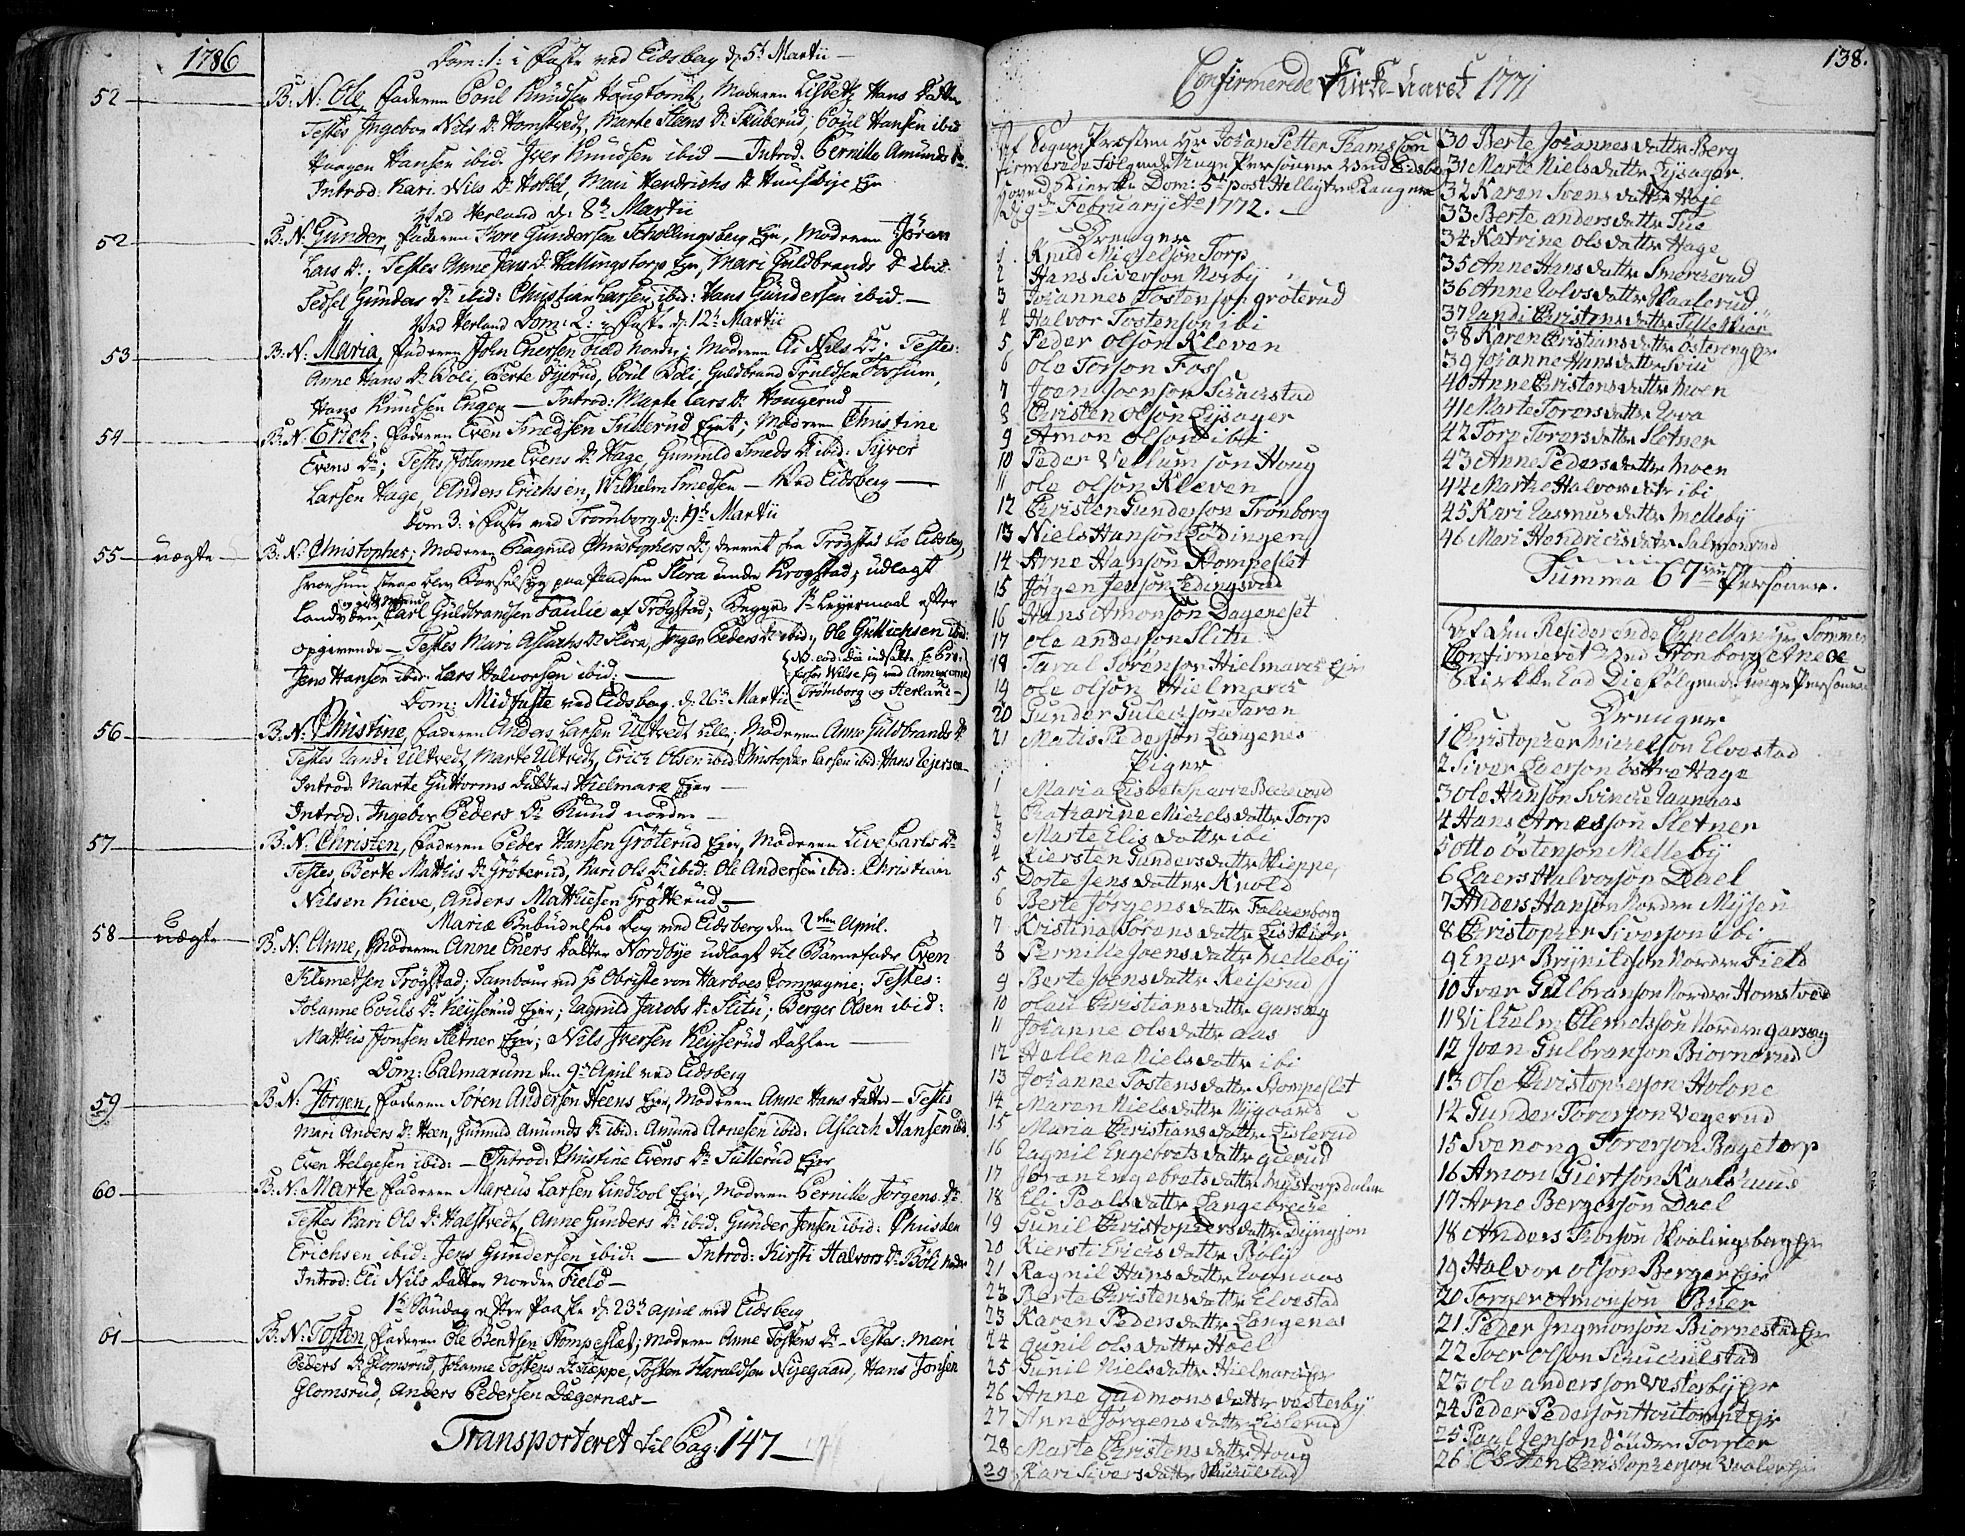 1786
Dom: 1: i Faste ved Eidsberg d: 5t Martii —
52 B: N: Ole, Faderen Poul Knudsen Hougtomt, Moderen Lisbeth Hans Datter
Testes Ingebor Nils Dr. Homstvedt, Marte Stens Dr. Skuberud, Poul Hansen ibid
Haagen Hansen ibid. Iver Knudsen ibid — Introd. Pernille Amunds Dr.
Introd: Kari Nils Dr. Hobbel, Mari Hendrichs Dr. Huusebye Eje
Ved Herland d: 8t Martii
52 B: N: Gunder, Faderen Tore Gundersen Schollingsberg Eje, Moderen Jöran
Lars Dr.; Testes Anne Jens Dr. Hallingstorp Eje, Mari Guldbrands Dr. ibid
Tedsel Gunders Dr. ibid: Christian Larsen ibid: Hans Gundersen ibid. —
Ved Herland Dom: 2: i Faste d: 12t Martii
53 B: N: Maria, Faderen John Enersen Field Nordre; Moderen Eli Nils Dr; Testes:
Anne Hans Dr. Boli, Berte Öyerud, Poul Boli, Guldbrand Trulsen Fossum,
Hans Knudsen Engen — Introd: Marte Lars Dr. Hougerud —
54 B: N: Erich; Faderen Even Smedsen Sullerud Ejet; Moderen Christine
Evens Dr; Testes Johanne Evens Dr. Hage, Gunnild Smeds Dr. ibid: Syver
Larsen Hage, Anders Erichsen, Wilhelm Smedsen — Ved Eidsberg —
Dom 3: i Faste ved Trömborg d: 19t Martii
55 uægte B: N: Christopher; Moderen Ragnild Christophers Dr., kommet fra Trögstad til Eidsberg,
hvor hun strax blev Barselsyg paa Pladsen Flora under Krogstad; udlagt
Carl Guldbrandsen Faulie af Trögstad; Begges 1te Leyermaal efter
opgivende — Testes Mari Aslachs Dr. Flora, Inger Peders Dr. ibid:, Ole Gullichsen ibid:
Jens Hansen ibid: Lars Halvorsen ibid: —
Trömborg og Herland —
Dom: Midfaste ved Eidsberg d: 26t Martii
56 B: N: Christine, Faderen Anders Larsen Ultvedt Lille; Moderen Anne Guldbrands Dr
Testes Randi Ultvedt, Marte Ultvedt, Erich Olsen ibid: Christopher Larsen ibid: Hans Ejersen —
Introd: Marte Guttorms Datter Hielmark Ejer —
Introd: Ingebor Peders Dr. Rund nordre —
57 B: N: Christen, Faderen Peder Hansen Gröterud Ejer, Moderen Live Carls Dr.
Testes, Berte Mathis Dr. Gröterud, Mari Ols Dr. ibid: Ole Andersen ibid: Christian
Nilsen Kieve, Anders Mathiesen Grötterud —
Mariæ Bebudelses Dag ved Eidsberg den 2den April.
58 Uægte B: N: Anne, Moderen Anne Eners Datter Nordbye udlagt til Barnefader Even
Klemetsen Trögstad; Tambour ved Hr. Obriste von Harboes Compagnie; Testes:
Johanne Pouls Dr. Keyserud Ejer; Ragnild Jacobs Dr. Slitu; Berger Olsen ibid:
Mathis Jonsen Sletner Ejer; Nils Iversen Keyserud Dahlen —
Dom: Palmarum den 9t April ved Eidsberg
59 B: N: Jörgen, Faderen Sören Andersen Heens Ejer, Moderen Anne Hans Datter — Testes
Mari Anders Dr. Heen, Gunnild Amunds Dr. ibid: Amund Arnesen ibid: Aslach Hansen ibid.
Even Helgesen ibid: — Introd: Christine Evens Dr. Sullerud Ejer
60 B: N: Marte, Faderen Marcus Larsen Lindhool Ejer, Moderen Pernille Jörgens Dr.
Testes Kari Ols Dr. Halstvedt, Anne Gunders Dr. ibid. Gunder Jensen ibid: Christen
Erichsen ibid: Jens Gundersen ibid: — Introd: Kirsti Halvors Dr. Böle Nordre
Introd: Eli Nils Datter Nordre Field —
1te Söndag efter Paaske d: 23t April ved Eidsberg
61 B: N: Tosten, Faderen Ole Bentsen Stompeslet; Moderen Anne Tostens Dr. — Testes: Mari
Peders Dr. Glomsrud, Johanne Tostens Dr. Kieppe, Tosten Haraldsen Nyegaard, Hans Jonsen
Glomsrud, Anders Pedersen Dægernæs —
Transporteret til Pag: 147 —
138.
Confirmerede Kirke-Aaret 1771
Af Sogne Præsten Hr Johan Petter Tramssön
firmerede Fölgende Unge Personer Ved Eidsberg
Hoved Kierke Dom: 5t post Hellig tre Konger
d: 9de February Ao 1772. —
Drenger
1 Knud Michelsön Torp
2 Hans Siverson Norby
3 Johannes Tostensön groterud
4 Halvor Tostenson ibi
5 Peder olsön Kleven
6 ole Torson Foss
7 Joen Joenson Skuckstad
8 Christen olsön Lysager
9 Amon olson ibi
10 Peder Vellumsön Houg
11 ole olsön Kleven
12 Christen Gunderson Tronborg
13 Niels Hanson Lödingen
14 Arne Hanson Stompeslet
15 Jörgen Jenson Edingsrud
16 Hans Amonsön Dageneset
17 ole anderson Slitu
18 Taral Sorönson Hielmarck Ejr
19 ole olson Hielmarck
20 Gunder Gulecksön Faren
21 Matis Pederson Langenes
Piger
1 Maria Lisbet Sparre Beckevold
2 Chatharine Michels datter Torp
3 Marte Elis datter ibi
4 Kiersten Gunders datter Kieppe,
5 Dorte Jens datter Knold
6 Berte Jörgens datter Falckenborg
7 Kristina Sörens datter Eid Kiær
8 Pernille Joens datter Melleby
9 Berte Joens datter Keiserud
10 olau Christians datter garseg
11 Johanne ols datter aas
12 Hellena Niels datter ibi
13 Johanne Tostens datter Stompeslet
14 Maren Niels datter Nygaard
15 Maria Christians datter Eislerud
16 Ragnil Engebrets datter gierud
17 Joran Engebrets datter Mystorpdalen
18 Eli Pouls datter Langebrecke
19 Gunil Christophers datter Dyngson
20 Kierste Ericks datter Bolig
21 Ragnil Hans datter Ramnaas
22 Berte Christens datter Elvestad
23 Karen Peders datter Langenas
24 gunil ols datter Hoel
25 Gunil Niels datter Hielmarck Ejr
26 Anne Gudmons datter vesterby
27 Anne Jörgens datter Eislerud
28 Marte Christens datter Houg
29 Kari Sivers datter Skuckelstad
30 Berte Johannes datter Berg
31 Marte Niels datter Lysager.
32 Karen Svens datter Höje
33 Berte anders datter Tue
34 Katrine ols datter Hage
35 Anne Hans datter Smorckerud
36 Anne Rolvs datter Haalerud
37 Randi Christens datter Lille Kiær
38 Karen Christians datter Ostereng Ejr
39 Johanne Hans datter Sviu
40 Anne Christens datter Moen
41 Marte Torers datter Rova
42 Torp Torers datter Sletner
43 Anne Peders datter Moen
44 Marthe Halvors datr ibi
45 Kari Rasmus datter Melleby
46 Mari Hendricks datter Salmonrud
Summa 67 Personer.
Af den Residerende Capellan Hr Sommer
Confirmeret Ved Tronborg Anexe
Kirkke Lod Die fölgende unge Personer
Drenger
1 Christopher Michelson Elvestad
2 Siver Everson östre Hage
3 Ole Hanson Svincke Ramnaas
4 Hans Arneson Sletner
5 Otto östenson Melleby
6 Laers Halvorson Dael
7 Anders Hanson Nordre Mysen
8 Christopher Siverson ibi
9 Enar Brynilsson Nordre Field
10 Iver Gulbranson Nordre Homstved
11 Vilhelm Clemetsson Nordre garseg
12 Joen Gulbranson Biornerud
13 Ole Christopherson Holone
14 Gunder Torerson Vegerud
15 Svenong Torerson Bagetorp
16 Amon Giertson Karlshuus
17 Arne Bergerson Dael
18 Anders Iverson Skollingsberg Ejr
19 Halvor olson Berger Ejr
20 Torger Amonson Buer
21 Peder Ingmonson Biornestad Ejr
22 Iver Olson Skuckelstad
23 Ole andersson Vesterby Ejr
24 Peder Pederson Houtompt Ejr
25 Paal Jenson Söndre Torper
26 Osten Christopherson Vooler Ejr